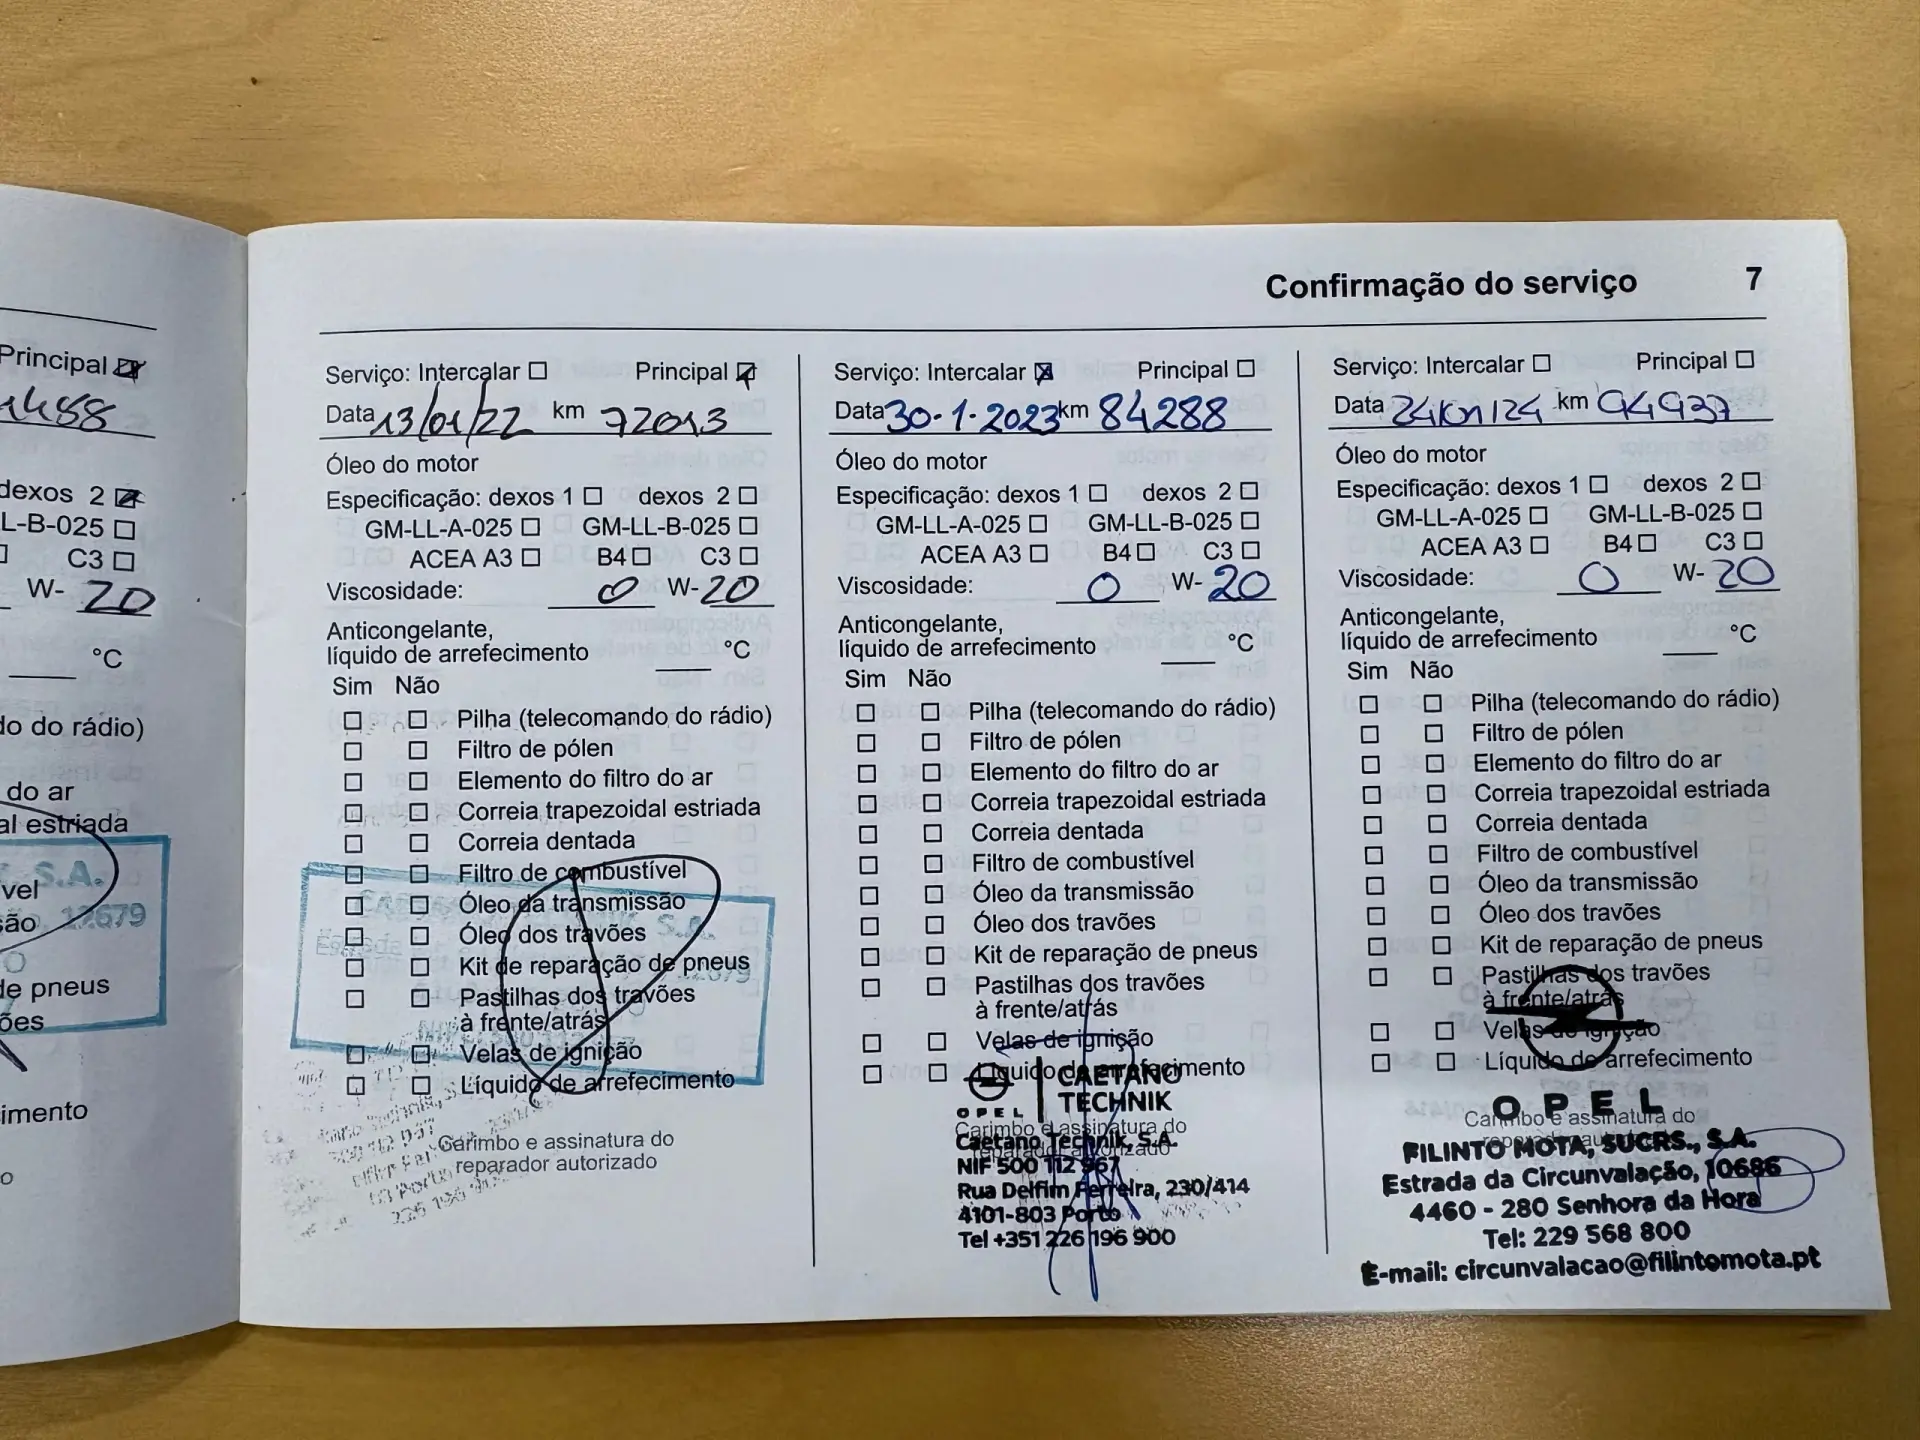 Principal
dexos 2
L-B-025
C3
W- 20
°C
do do rádio)
do ar
al estriada
S.A.
vel
são
12679
de pneus
ões
imento
o
Confirmação do serviço 7
Serviço: Intercalar Principal
Data 13/01/22 km 72013
Óleo do motor
Especificação: dexos 1 dexos 2
GM-LL-A-025 GM-LL-B-025
ACEA A3 B4 C3
Viscosidade: 0 W-20
Anticongelante,
líquido de arrefecimento °C
Sim Não
Pilha (telecomando do rádio)
Filtro de pólen
Elemento do filtro do ar
Correia trapezoidal estriada
Correia dentada
Filtro de combustível
Óleo da transmissão
Óleo dos travões
Kit de reparação de pneus
Pastilhas dos travões
à frente/atrás
Velas de ignição
Líquido de arrefecimento
Carimbo e assinatura do
reparador autorizado
Serviço: Intercalar Principal
Data 30-1-2023 km 84288
Óleo do motor
Especificação: dexos 1 dexos 2
GM-LL-A-025 GM-LL-B-025
ACEA A3 B4 C3
Viscosidade: 0 W-20
Anticongelante,
líquido de arrefecimento °C
Sim Não
Pilha (telecomando do rádio)
Filtro de pólen
Elemento do filtro do ar
Correia trapezoidal estriada
Correia dentada
Filtro de combustível
Óleo da transmissão
Óleo dos travões
Kit de reparação de pneus
Pastilhas dos travões
à frente/atrás
Velas de ignição
Líquido de arrefecimento
CAETANO
TECHNIK
OPEL
Carimbo e assinatura do
reparador autorizado
Caetano Technik, S.A.
NIF 500 112 967
Rua Delfim Ferreira, 230/414
4101-803 Porto
Tel +351 226 196 900
Serviço: Intercalar Principal
Data 24/01/24 km 94937
Óleo do motor
Especificação: dexos 1 dexos 2
GM-LL-A-025 GM-LL-B-025
ACEA A3 B4 C3
Viscosidade: 0 W-20
Anticongelante,
líquido de arrefecimento °C
Sim Não
Pilha (telecomando do rádio)
Filtro de pólen
Elemento do filtro do ar
Correia trapezoidal estriada
Correia dentada
Filtro de combustível
Óleo da transmissão
Óleo dos travões
Kit de reparação de pneus
Pastilhas dos travões
à frente/atrás
Velas de ignição
Líquido de arrefecimento
OPEL
Carimbo e assinatura do
FILINTO MOTA, SUCRS., S.A.
Estrada da Circunvalação, 10686
4460 - 280 Senhora da Hora
Tel: 229 568 800
E-mail: circunvalacao@filintomota.pt